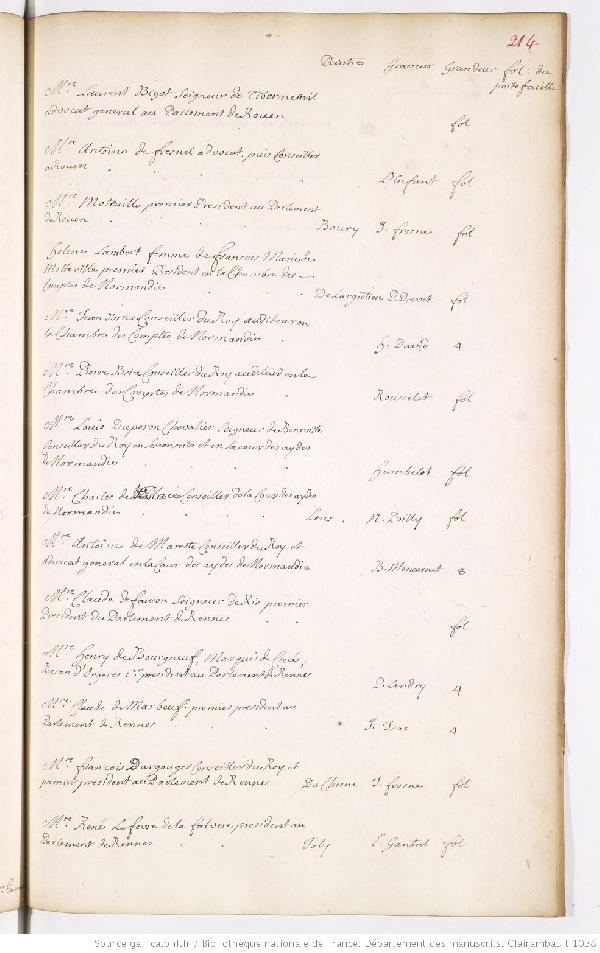 214.
Peintre Graveur Grandeur fol. du
porte feuille
Mre. Laurent Bigot Seigneur de Tibermenil
advocat general au Parlement de Rouen fol
Mre. Antoine de fresnel advocat, puis Conseiller
a Rouen L'enfant fol
Mre. Moteuille, premier President au Parlement
de Rouen Boury J. frosne fol
helene Lambert femme de francois Marie de
Motteville premier President en la Chambre des
Comptes de Normandie De Largilliere P. Drevet fol
Mre. Jean Brice Conseiller du Roy auditeur en
la Chambre des Comptes de Normandie H. David 4
Mre. Pierre Brice Conseiller du Roy auditeur en la
Chambre des Comptes de Normandie Rousselet fol
Mre. Louis Duperon Chevalier Seigneur de Benneville
Conseiller du Roy en ses conseils et en la cour des aydes
de Normandie Humbelot fol
Mre. Charles de Conseiller de la Cour des ayds
de Normandie Lens N. Poilly fol
Mre. Antoine de Mareste Conseiller du Roy et
advocat general en la Cour des aydes de Normandie B. Moncornet 8
Mre. Claude de faucon Seigneur de Ris premier
President du Parlement de Rennes fol
Mre. Henry de Bourgneuf, Marquis de Cucé,
Baron d'Orgeres &c. president au Parlement de Rennes P. Landry 4
Mre. Claude de Marbeuf premier president au
Parlement de Rennes J. Isac 4
Mre. francois Dargouges Conseiller du Roy et
premier president au Parlement de Rennes Du Chesne J. frosne fol
Mre. René Le feure de la faluere, president au
Parlement de Rennes Joly E. Gantrel fol
Source gallica.bnf.fr / Bibliothèque nationale de France. Département des manuscrits. Clairambault 1038